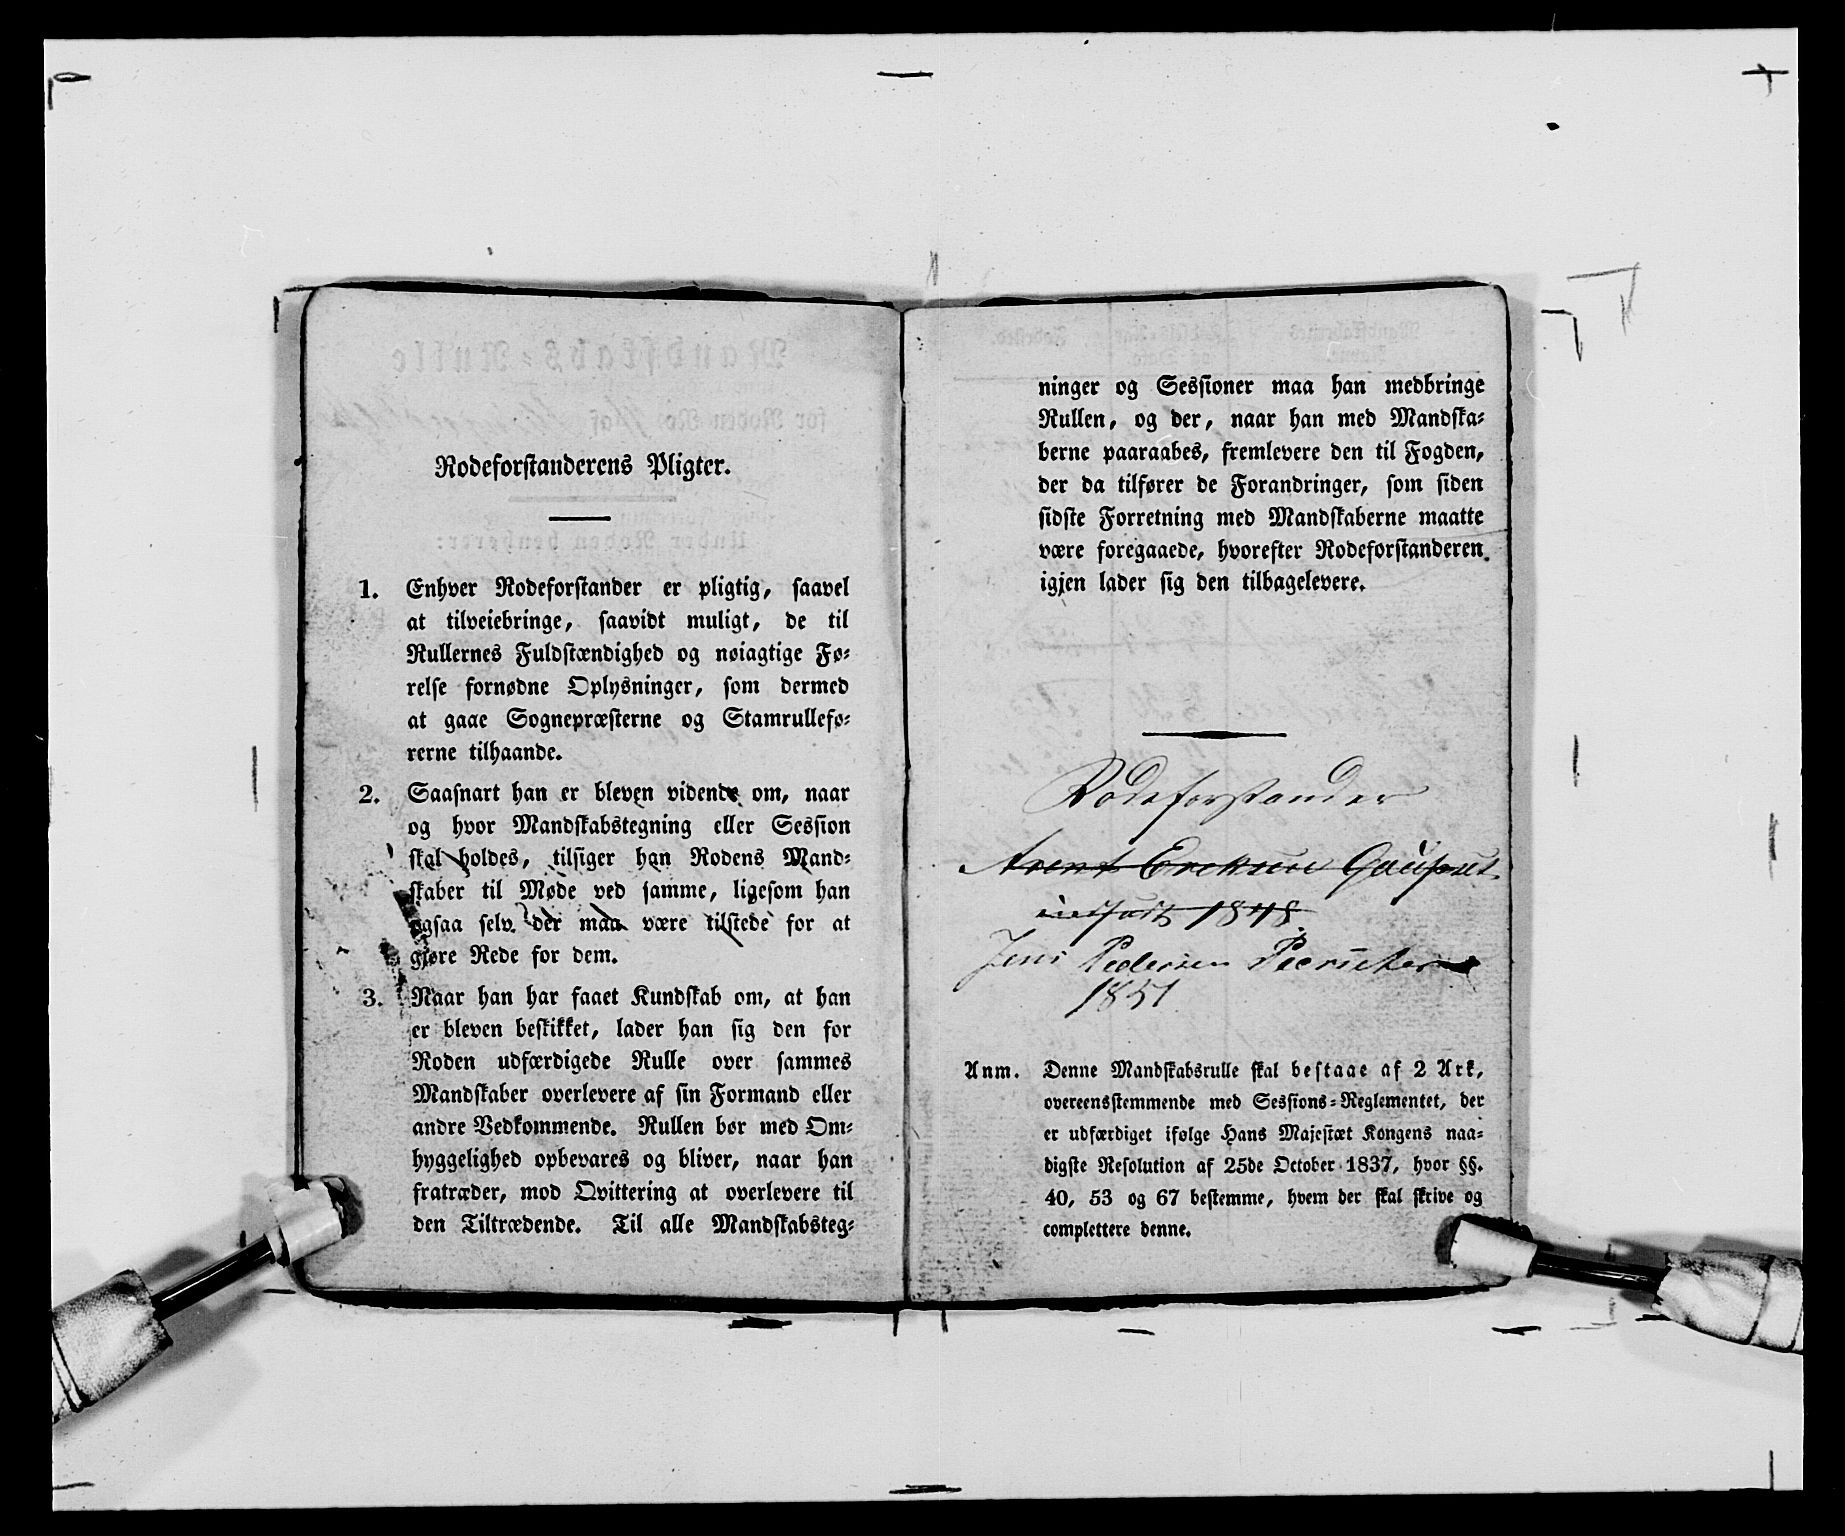 Rodeforstanderens Pligter.
1. Enhver Rodeforstander er pligtig, saavel
at tilveiebringe, saavidt muligt, de til
Rullernes Fuldstændighed og nøiagtige Fø-
relse fornødne Oplysninger, som dermed
at gaae Sognepræsterne og Stamrullefø-
rerne tilhaande.
2. Saasnart han er bleven vidende om, naar
og hvor Mandskabstegning eller Session
skal holdes, tilsiger han Rodens Mand-
skaber til Møde ved samme, ligesom han
ogsaa selv der maa være tilstede for at
gjøre Rede for dem.
3. Naar han har faaet Kundskab om, at han
er bleven beskikket, lader han sig den for
Roden udfærdigede Rulle over sammes
Mandskaber overlevere af sin Formand eller
andre Vedkommende. Rullen bør med Om-
hyggelighed opbevares og bliver, naar han
fratræder, mod Qvittering at overlevere til
den Tiltrædende. Til alle Mandskabsteg-
ninger og Sessioner maa han medbringe
Rullen, og der, naar han med Mandska-
berne paaraabes, fremlevere den til Fogden,
der da tilfører de Forandringer, som siden
sidste Forretning med Mandskaberne maatte
være foregaaede, hvorefter Rodeforstanderen
igjen lader sig den tilbagelevere.
Rodeforstander
1848
Jens Pedersen
1851
Anm. Denne Mandskabsrulle skal bestaae af 2 Ark,
overeensstemmende med Sessions-Reglementet, der
er udfærdiget ifølge Hans Majestæt Kongens naa-
digste Resolution af 25de October 1837, hvor §§.
40, 53 og 67 bestemme, hvem der skal skrive og
complettere denne.